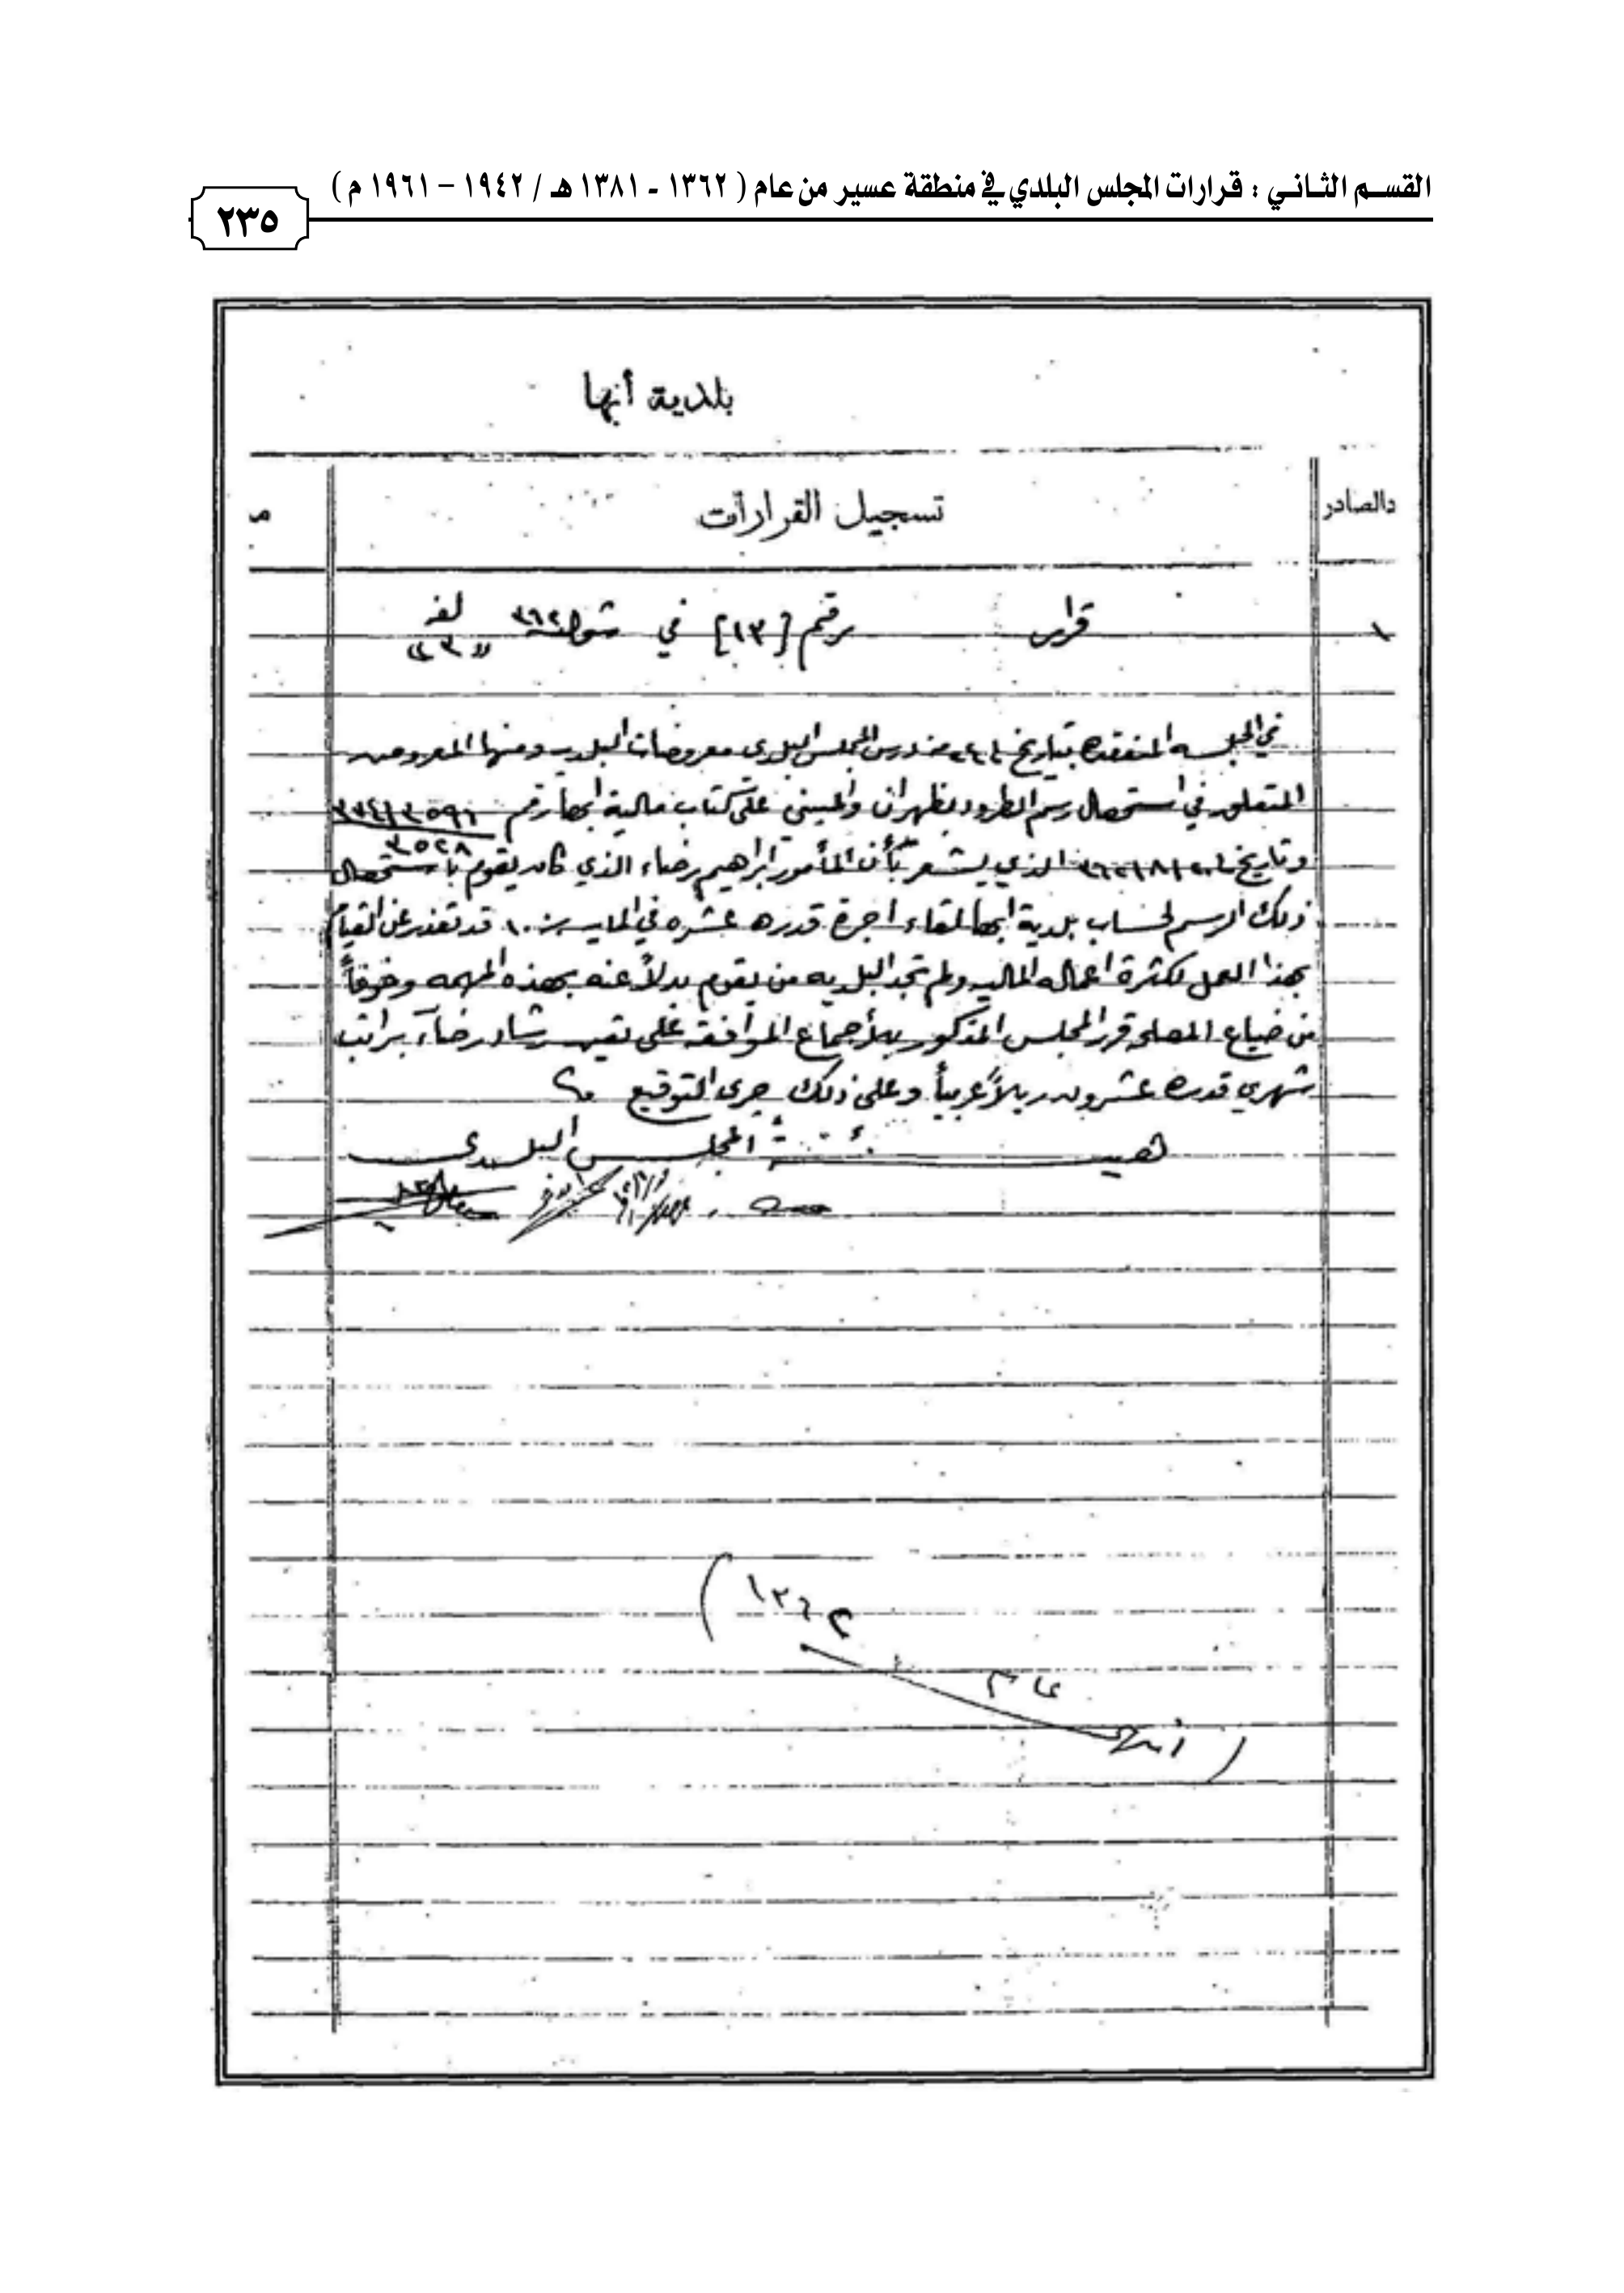 القسم الثاني : قرارات المجلس البلدي في منطقة عسير من عام ( ١٣٦٢ - ١٣٨١ هـ / ١٩٤٢ – ١٩٦١ م )
٢٣٥
بلدية أبها
دالصادر تسجيل القرارات
١ قرار رقم [١٣] في شوال ٣٦٢ لفه
في الجلسه المنعقده بتاريخ درس المجلس البلدي معروضات البلديه ومنها المعروض
المتعلق في استحصال رسم بظهران والمبني على كتاب مالية ابها رقم
٣٥٢٨
وتاريخ الذي يشعر بأن المأمور ابراهيم رضاء الذي كان يقوم باستحصال
ذلك الرسم لحساب بلدية ابها لقاء اجرة قدره عشره في المايه ١٠ قد تعذر عن القيام
بهذا العمل لكثرة اعماله الماليه ولم تجد البلديه من يقوم بدلاً عنه بهذه المهمه وخوفاً
من ضياع المصلحه قرر المجلس المذكور بالأجماع الموافقه على تعيين رشاد رضاء براتب
شهري قدره عشرون ريالاً عربياً وعلى ذلك جرى التوقيع
هيئة المجلس البلدي
( انتهى عام ١٣٦٢ )